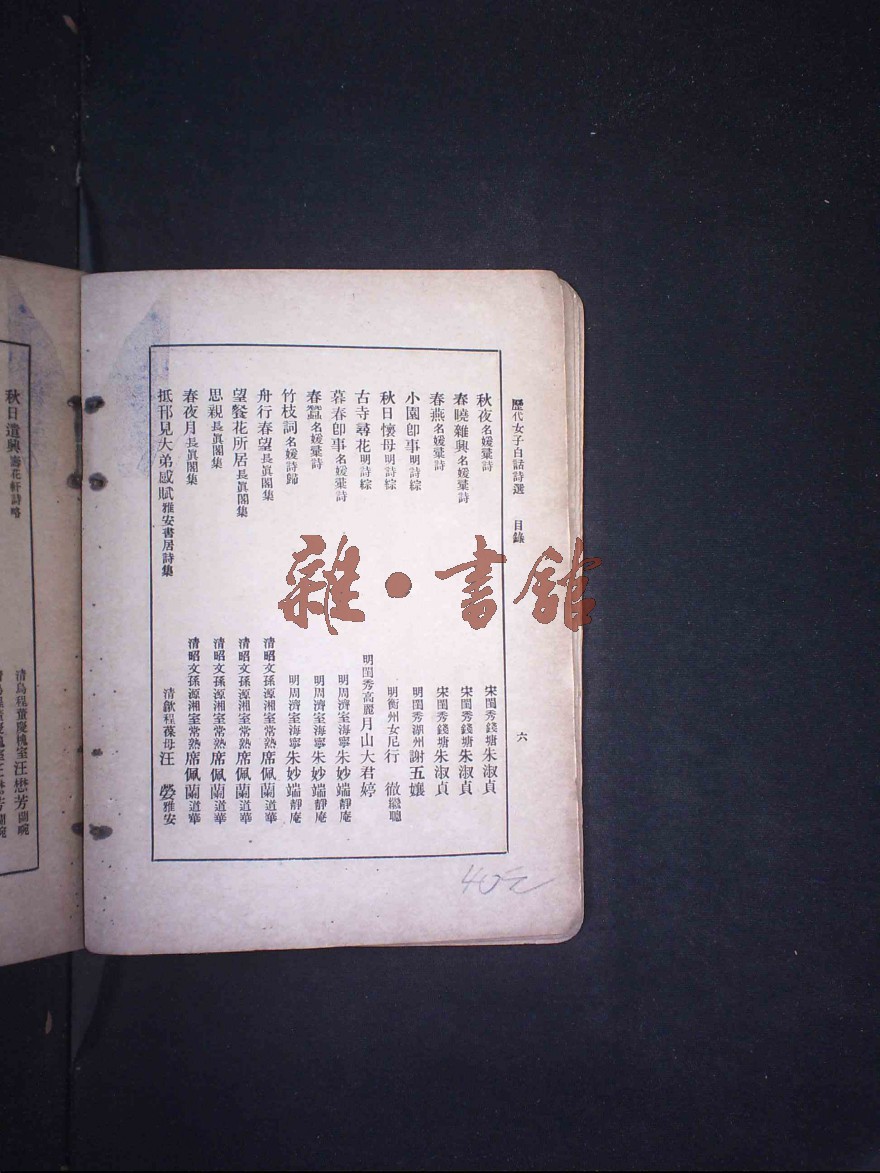 歷代女子白話詩選 目錄 六
秋夜名媛彙詩 宋閨秀錢塘朱淑貞
春曉雜興名媛彙詩 宋閨秀錢塘朱淑貞
春燕名媛彙詩 宋閨秀錢塘朱淑貞
小園卽事明詩綜 明閨秀湖州謝五孃
秋日懷母明詩綜 明衡州女尼行徹繼聰
古寺尋花明詩綜 明閨秀高麗月山大君婷
暮春卽事名媛彙詩 明周濟室海寧朱妙端靜庵
春蠶名媛彙詩 明周濟室海寧朱妙端靜庵
竹枝詞名媛詩歸 明周濟室海寧朱妙端靜庵
舟行春望長眞閣集 清昭文孫源湘室常熟席佩蘭道華
望餐花所居長眞閣集 清昭文孫源湘室常熟席佩蘭道華
思親長眞閣集 清昭文孫源湘室常熟席佩蘭道華
春夜月長眞閣集 清昭文孫源湘室常熟席佩蘭道華
抵邗見大弟感賦雅安書居詩集 清歙程葆母汪嫈雅安
秋日遣興壽花軒詩略 清烏程董慶槐室汪懋芳蘭畹
雜·書館
40元